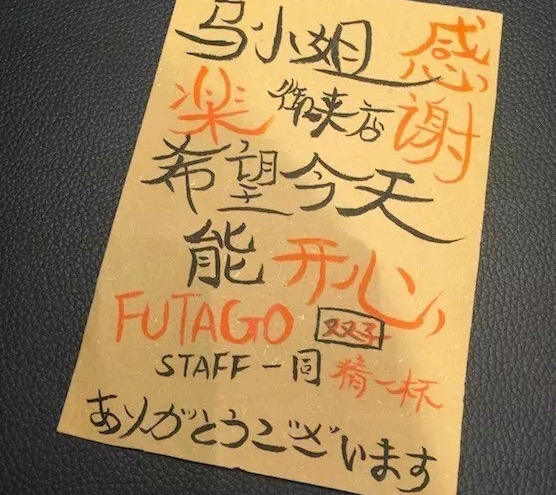 马小姐
感谢
楽 御来店
希望今天
能 开心
FUTAGO 双子
STAFF一同 精一杯
ありがとうございます